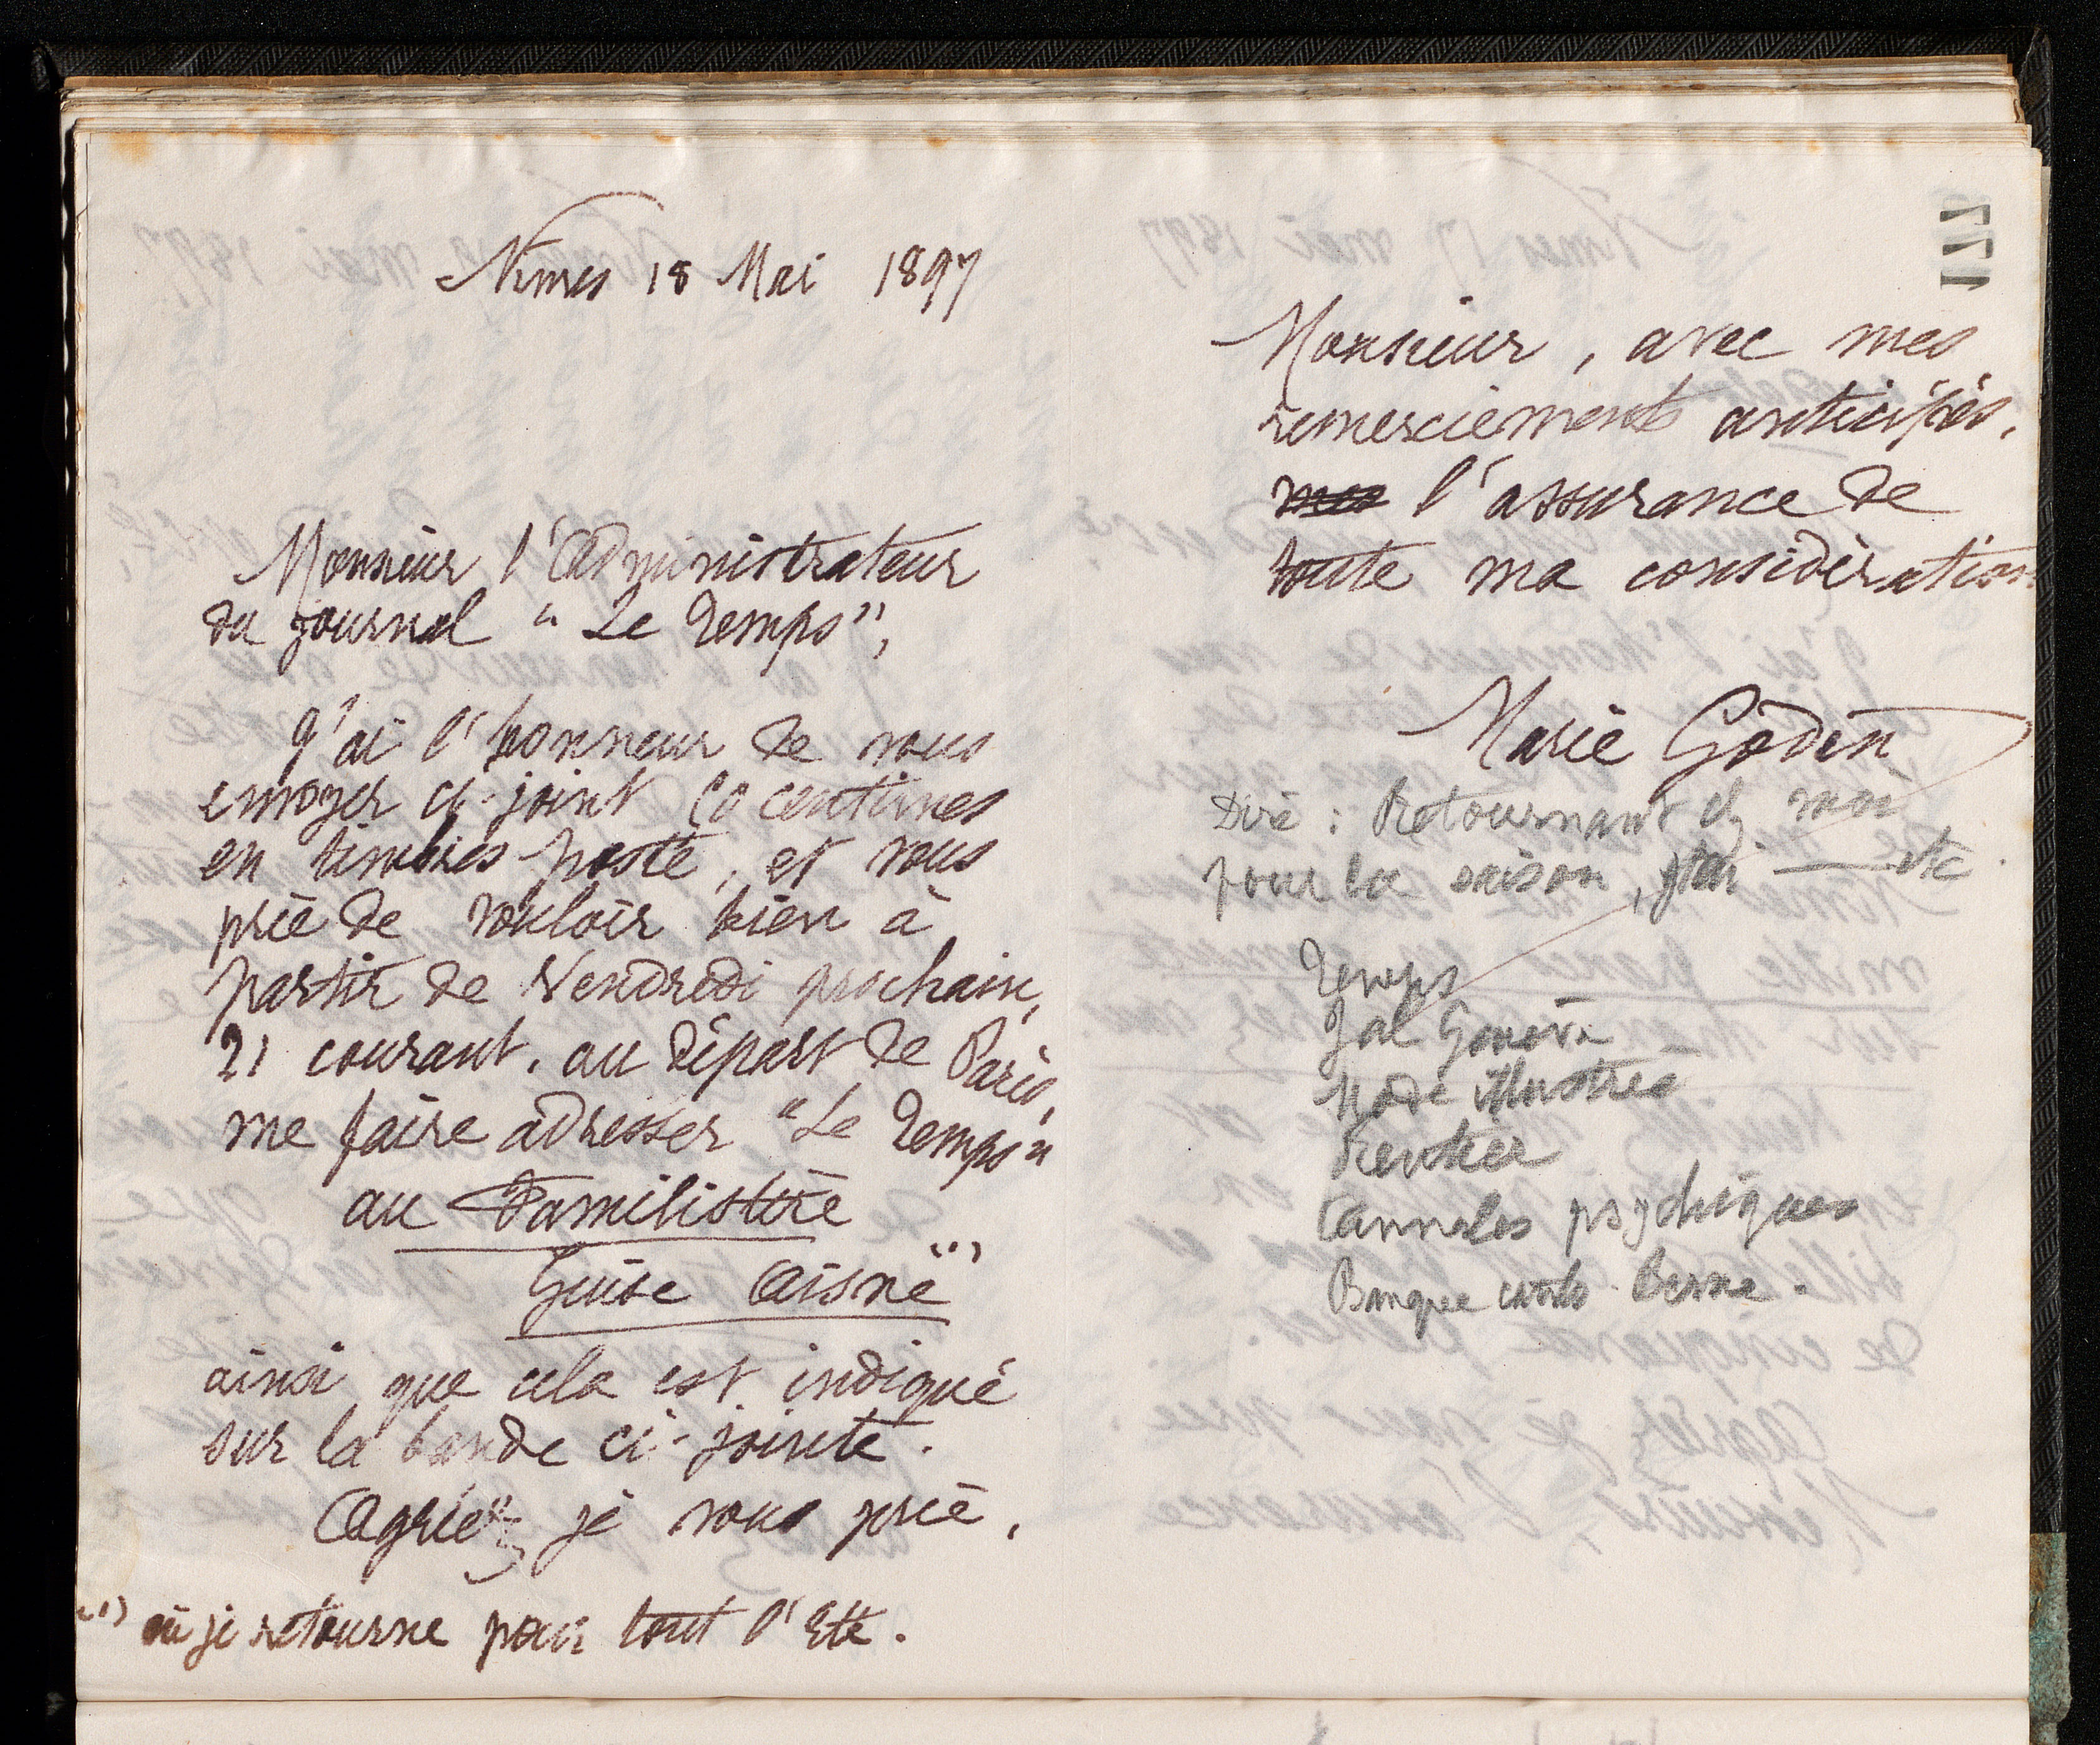 Nimes 18 Mai 1897
Monsieur l'Administrateur
du journal "Le Temps",
J'ai l'honneur de vous
envoyer ci-joint 60 centimes
en timbres poste, et vous
prie de vouloir bien à
partir de Vendredi prochain,
21 courant, au départ de Paris,
me faire adresser "Le Temps"
au Familistère
Guise Aisne (1)
ainsi que cela est indiqué
sur la bande ci-jointe.
Agréez je vous prie,
(1) où je retourne pour tout l'Eté.
177
Monsieur, avec mes
remerciements anticipés,
mes l'assurance de
toute ma considération
Marie Godin
Dire : Retournant ch moi
pour la saison, j'ai — etc
Temps
Jal Genève
Mode illustrée
Rentier
Annales psychiques
Banque cant. Berne.